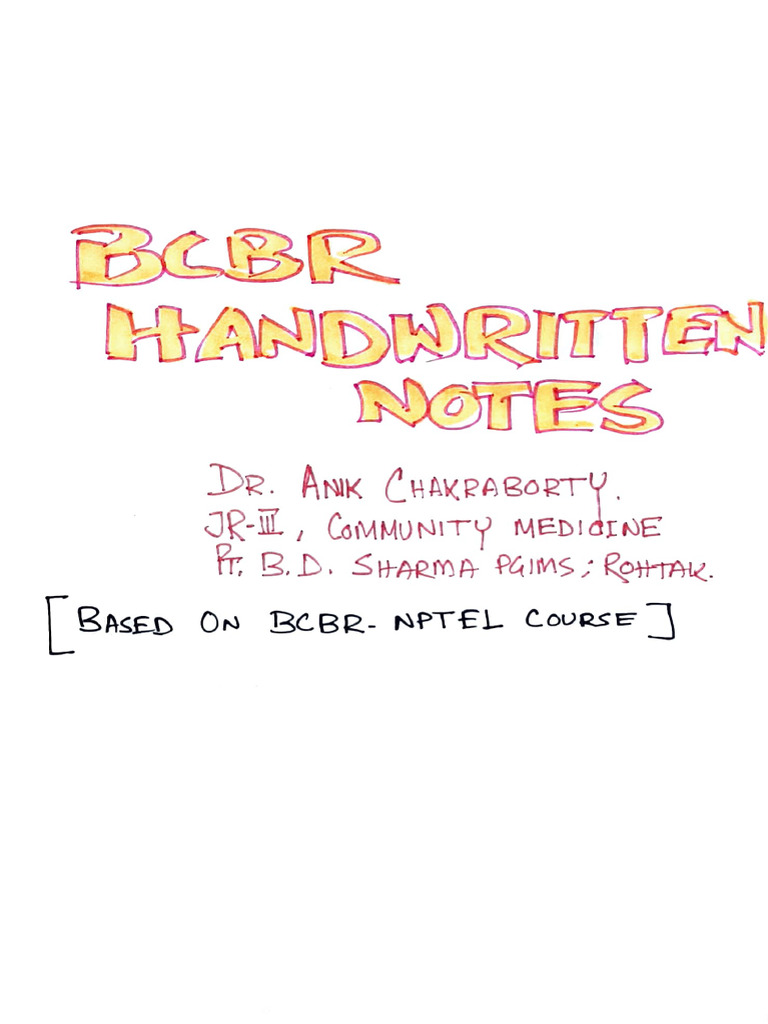 BCBR
HANDWRITTEN
NOTES
DR. ANIK CHAKRABORTY.
JR-III, COMMUNITY MEDICINE
PT. B.D. SHARMA PGIMS; ROHTAK.
[BASED ON BCBR- NPTEL COURSE]